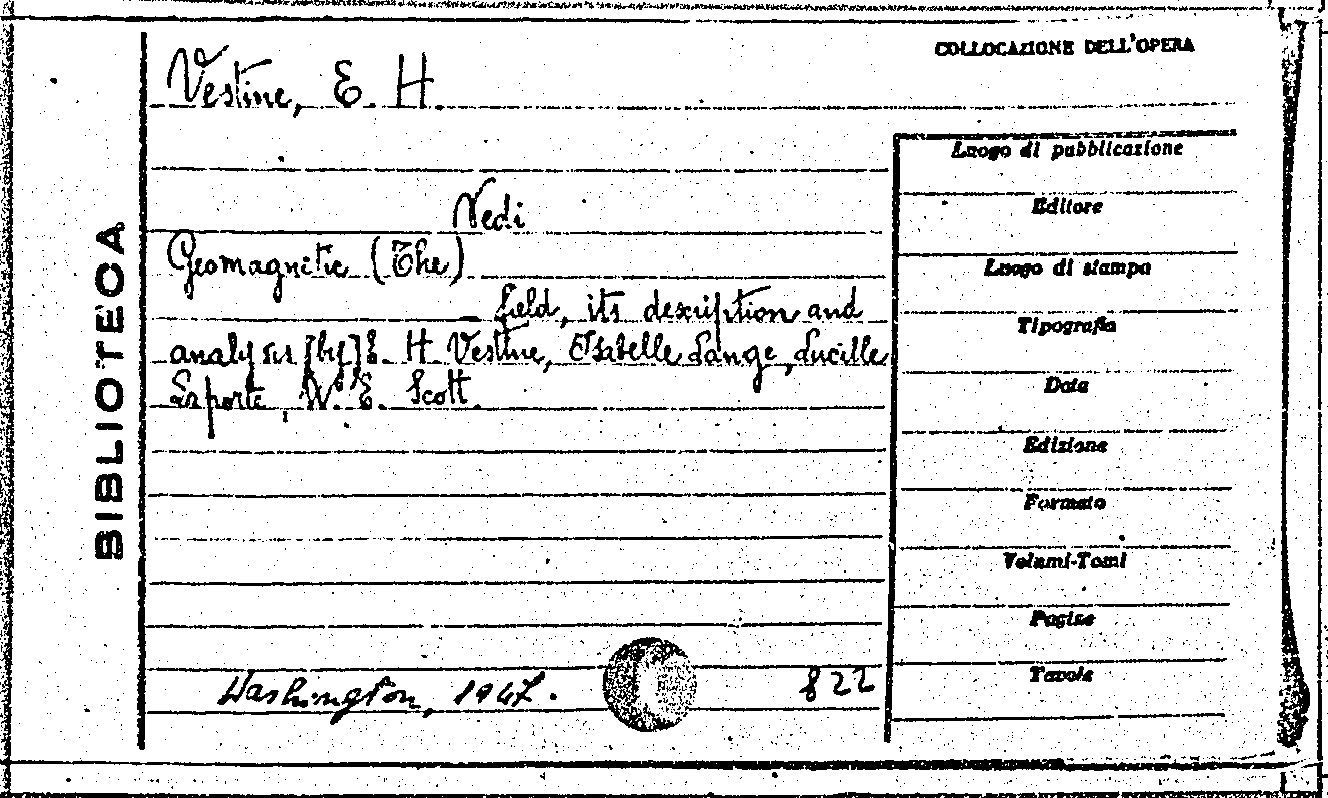 COLLOCAZIONE DELL'OPERA
Vestine, E. H.
Vedi
Geomagnetic (The)
field, its description and
analysis [by] E. H Vestine, Isabelle Lange, Lucille
Laporte, W. E. Scott.
Washington, 1947.
822
BIBLIOTECA
Luogo di pubblicazione
Editore
Luogo di stampa
Tipografia
Data
Edizione
Formato
Volumi-Tomi
Pagine
Tavole